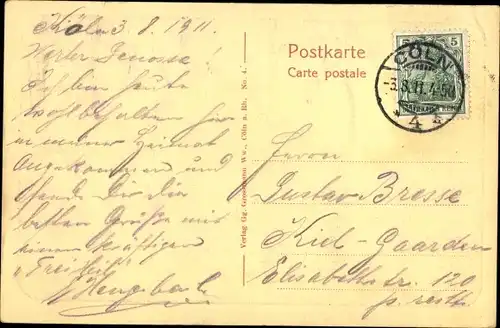 Köln 3.8.1911.
Werter Genosse!
Ich bin heute
wohlbehalten hier
in meiner Heimat
angekommen und
sende Dir die
besten Grüße mit
einem kräftigen
"Frei Heil"
Postkarte
Carte postale
CÖLN
-3.8.11.4-5N
* 4 k
5
Verlag Gg. Grosskopf Ww., Cöln a. Rh. No. 4.
Herrn
Gustav Bresse
Kiel-Gaarden
Elisabethstr. 120
p. rest.